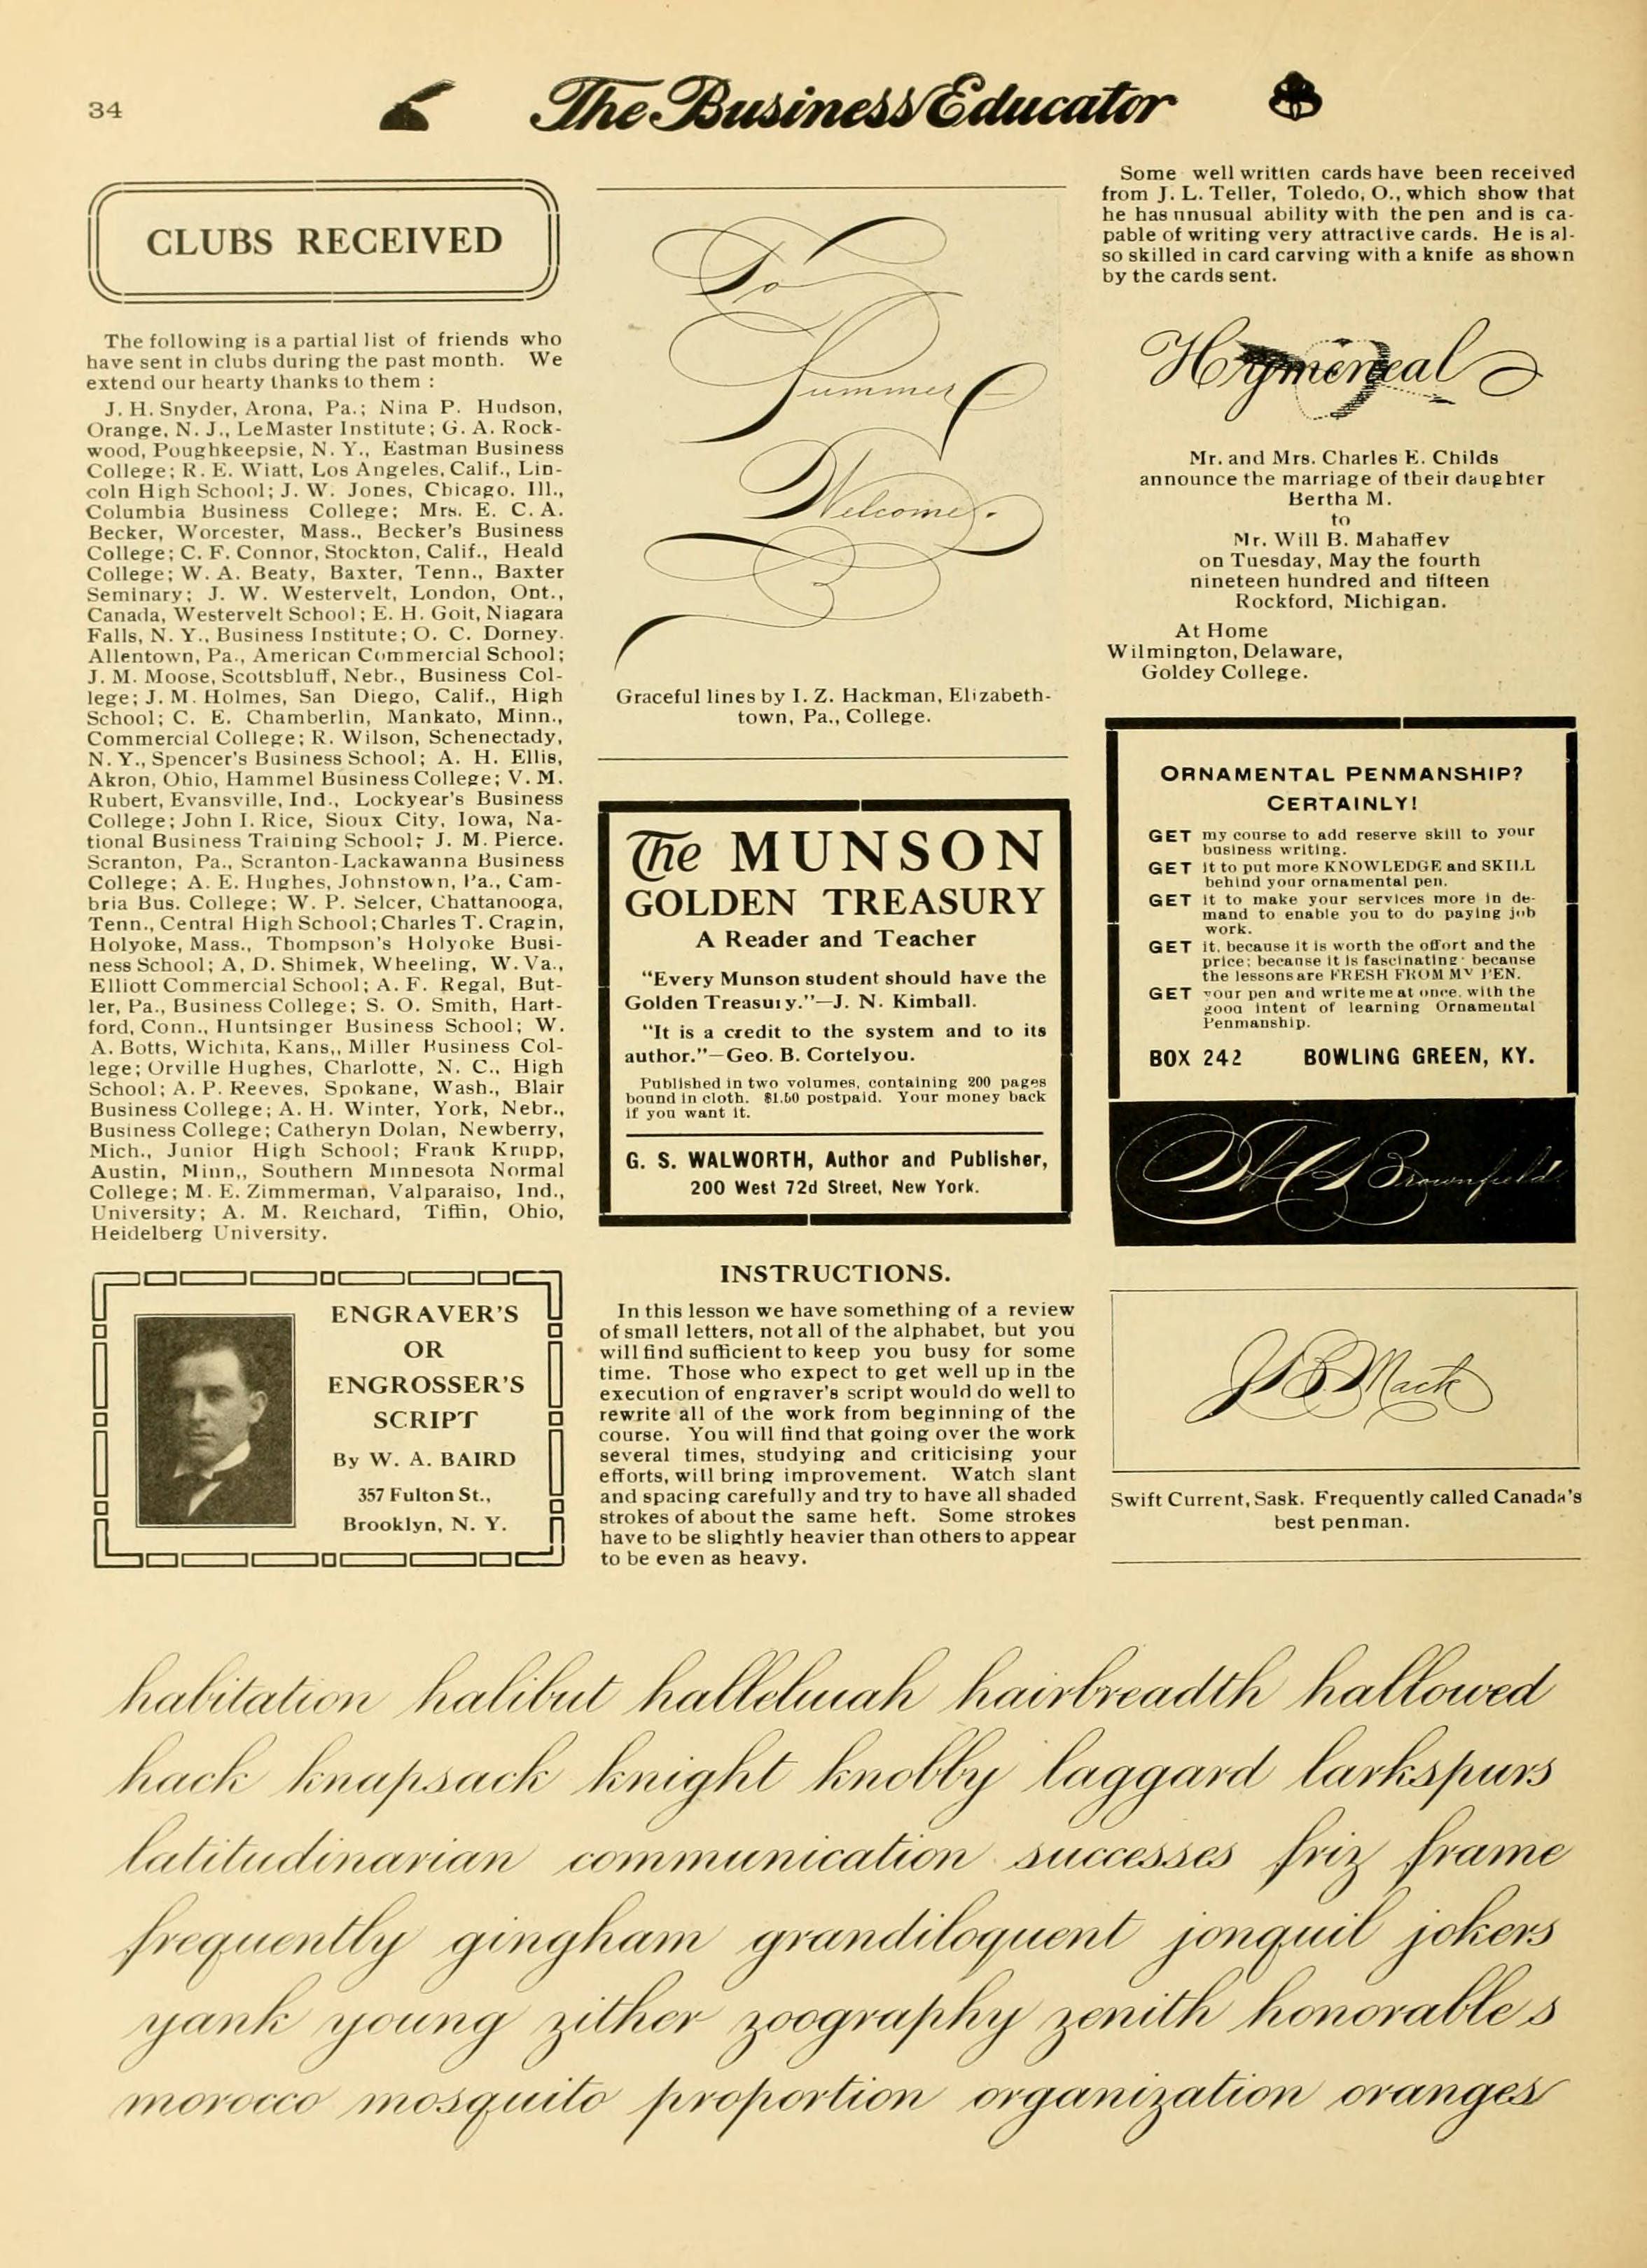 34
The Business Educator
CLUBS RECEIVED
The following is a partial list of friends who
have sent in clubs during the past month. We
extend our hearty thanks to them :
J. H. Snyder, Arona, Pa.; Nina P. Hudson,
Orange, N. J., LeMaster Institute; G. A. Rock-
wood, Poughkeepsie, N. Y., Eastman Business
College; R. E. Wiatt, Los Angeles, Calif., Lin-
coln High School; J. W. Jones, Chicago, Ill.,
Columbia Business College; Mrs. E. C. A.
Becker, Worcester, Mass., Becker's Business
College; C. F. Connor, Stockton, Calif., Heald
College; W. A. Beaty, Baxter, Tenn., Baxter
Seminary; J. W. Westervelt, London, Ont.,
Canada, Westervelt School; E. H. Goit, Niagara
Falls, N. Y., Business Institute; O. C. Dorney.
Allentown, Pa., American Commercial School;
J. M. Moose, Scottsbluff, Nebr., Business Col-
lege; J. M. Holmes, San Diego, Calif., High
School; C. E. Chamberlin, Mankato, Minn.,
Commercial College; R. Wilson, Schenectady,
N. Y., Spencer's Business School; A. H. Ellis,
Akron, Ohio, Hammel Business College; V. M.
Rubert, Evansville, Ind., Lockyear's Business
College; John I. Rice, Sioux City, Iowa, Na-
tional Business Training School; J. M. Pierce.
Scranton, Pa., Scranton-Lackawanna Business
College; A. E. Hughes, Johnstown, Pa., Cam-
bria Bus. College; W. P. Selcer, Chattanooga,
Tenn., Central High School; Charles T. Cragin,
Holyoke, Mass., Thompson's Holyoke Busi-
ness School; A, D. Shimek, Wheeling, W. Va.,
Elliott Commercial School; A. F. Regal, But-
ler, Pa., Business College; S. O. Smith, Hart-
ford, Conn., Huntsinger Business School; W.
A. Botts, Wichita, Kans,, Miller Business Col-
lege; Orville Hughes, Charlotte, N. C., High
School; A. P. Reeves, Spokane, Wash., Blair
Business College; A. H. Winter, York, Nebr.,
Business College; Catheryn Dolan, Newberry,
Mich., Junior High School; Frank Krupp,
Austin, Minn,, Southern Minnesota Normal
College; M. E. Zimmerman, Valparaiso, Ind.,
University; A. M. Reichard, Tiffin, Ohio,
Heidelberg University.
ENGRAVER'S
OR
ENGROSSER'S
SCRIPT
By W. A. BAIRD
357 Fulton St.,
Brooklyn, N. Y.
To
Summer
Welcome.
Graceful lines by I. Z. Hackman, Elizabeth-
town, Pa., College.
The MUNSON
GOLDEN TREASURY
A Reader and Teacher
"Every Munson student should have the
Golden Treasury."—J. N. Kimball.
"It is a credit to the system and to its
author."—Geo. B. Cortelyou.
Published in two volumes, containing 200 pages
bound in cloth. $1.50 postpaid. Your money back
if you want it.
G. S. WALWORTH, Author and Publisher,
200 West 72d Street, New York.
INSTRUCTIONS.
In this lesson we have something of a review
of small letters, not all of the alphabet, but you
will find sufficient to keep you busy for some
time. Those who expect to get well up in the
execution of engraver's script would do well to
rewrite all of the work from beginning of the
course. You will find that going over the work
several times, studying and criticising your
efforts, will bring improvement. Watch slant
and spacing carefully and try to have all shaded
strokes of about the same heft. Some strokes
have to be slightly heavier than others to appear
to be even as heavy.
Some well written cards have been received
from J. L. Teller, Toledo, O., which show that
he has unusual ability with the pen and is ca-
pable of writing very attractive cards. He is al-
so skilled in card carving with a knife as shown
by the cards sent.
Hymeneal
Mr. and Mrs. Charles E. Childs
announce the marriage of their daughter
Bertha M.
to
Mr. Will B. Mahaffey
on Tuesday, May the fourth
nineteen hundred and fifteen
Rockford, Michigan.
At Home
Wilmington, Delaware,
Goldey College.
ORNAMENTAL PENMANSHIP?
CERTAINLY!
GET my course to add reserve skill to your
business writing.
GET it to put more KNOWLEDGE and SKILL
behind your ornamental pen.
GET it to make your services more in de-
mand to enable you to do paying job
work.
GET it, because it is worth the effort and the
price; because it is fascinating; because
the lessons are FRESH FROM MY PEN.
GET your pen and write me at once, with the
good intent of learning Ornamental
Penmanship.
BOX 242 BOWLING GREEN, KY.
Brownfield
J B Mack
Swift Current, Sask. Frequently called Canada's
best penman.
habitation halibut halleluiah hairbreadth hallowed
hack knapsack knight knobby laggard larkspurs
latitudinarian communication successes friz frame
frequently gingham grandiloquent jonquil jokers
yank young zither zoography zenith honorable s
morocco mosquito proportion organization oranges